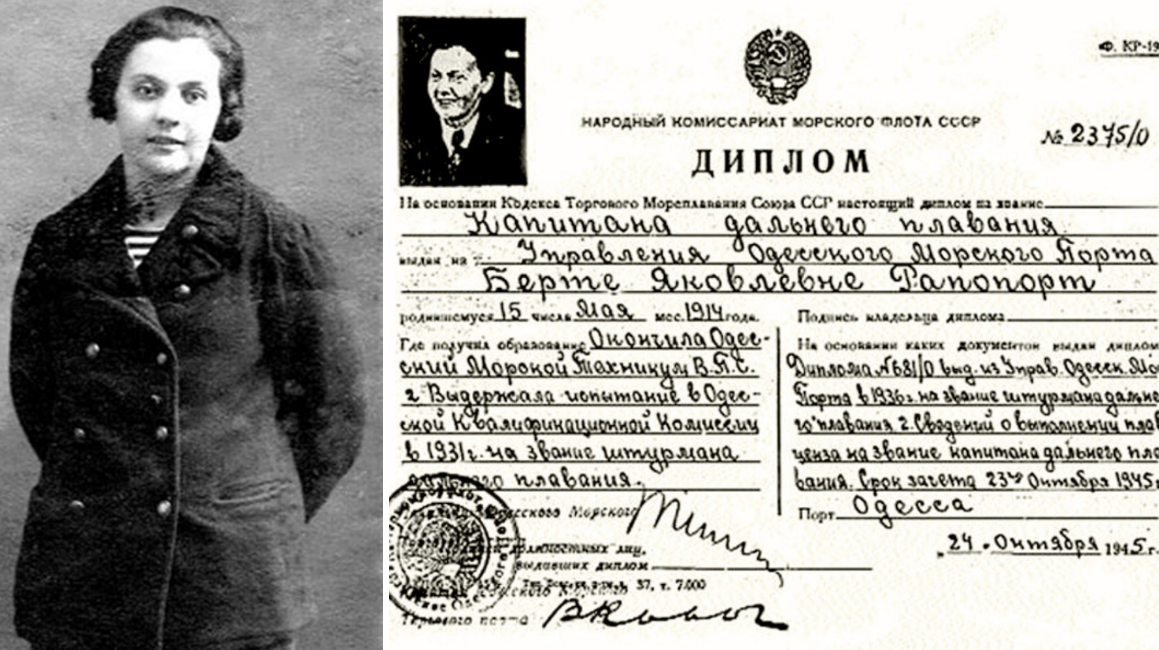 Ф. КР-19
НАРОДНЫЙ КОМИССАРИАТ МОРСКОГО ФЛОТА СССР
№ 2375/0
ДИПЛОМ
На основании Кодекса Торгового Мореплавания Союза ССР настоящий диплом на звание
Капитана дальнего плавания
выдан из Управления Одесского Морского Порта
Берте Яковлевне Рапопорт
родившемуся 15 числа Мая мес. 1914 года.
Где получил образование Окончила Одес-
ский Морской Техникум В.П.С.
2 Выдержала испытание в Одес-
ской Квалификационной Комиссии
в 1931 г. на звание штурмана
дальнего плавания.
Подпись владельца диплома
На основании каких документов выдан диплом
Диплома №681/0 выд. из Управ. Одесск. Мор
Порта в 1936 г. на звание штурмана дальне
го плавания 2. Сведений о выполнении плав
ценза на звание капитана дального пла
вания. Срок зачета 23го Октября 1945 г.
Порт Одесса
24 Октября 1945 г.
Одесского Морского
должностных лиц,
выдавших диплом
37, т. 7.000